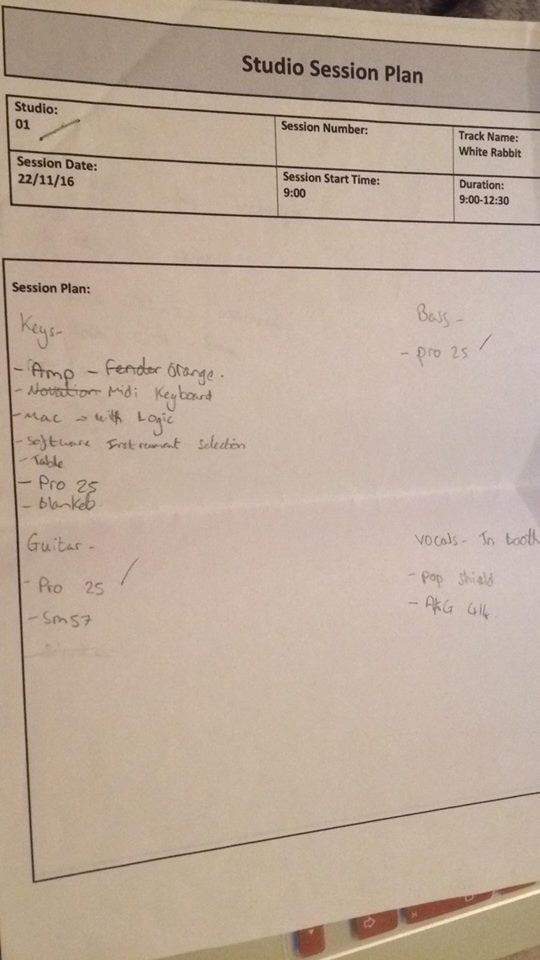 Studio Session Plan
Studio:
01
Session Number:
Track Name:
White Rabbit
Session Date:
22/11/16
Session Start Time:
9:00
Duration:
9:00-12:30
Session Plan:
Keys-
- Amp - Fender Orange.
- Novation Midi Keyboard
- Mac → with Logic
- Software Instrument Selection
- Table
- Pro 25
- blankets
Bass -
- pro 25
Guitar -
- Pro 25
- Sm57
vocals - In booth
- pop shield
- AKG 414